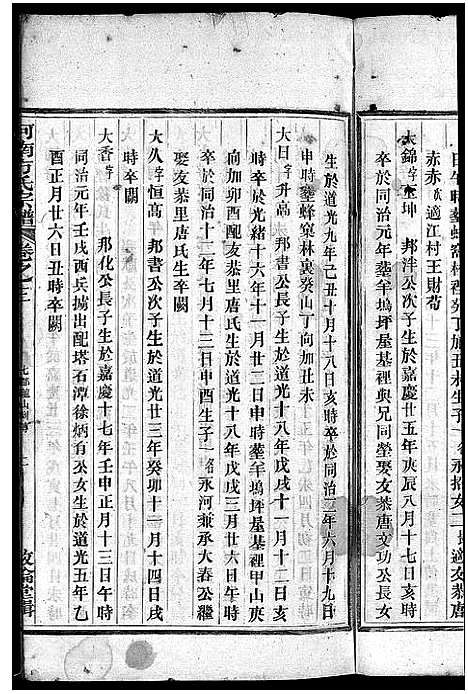 日午時塟蜂窠村
赤赤 適江村王財苟
大錦字聲坤 邦泮公次子生於嘉慶廿五年庚辰八月十七日亥時
卒於同治元年塟羊塢坪屋基裡與兄同塋娶友恭唐文功公長女
生於道光九年己丑十月十八日亥時卒於同治三年六月十九日
申時塟蜂窠林裏癸山丁向加丑未
大日字升高 邦書公長子生於道光十八年戊戌十一月十二日亥
時卒於光緒十六年十一月廿二日申時塟羊塢坪屋基裡甲山庚
向加卯酉配友恭里唐氏生於道光十八年戊戌三月廿六日亥時
卒於同治十三年七月十三日申酉生子一 永河兼承大春公繼
娶友恭里唐氏生卒闕
大久字恒高 邦書公次子生於道光廿三年癸卯十一月十四日戌
時卒闕
大香字 邦化公長子生於嘉慶十七年壬申正月十三日午時
同治元年壬戌西兵擄出配塔石潭徐炳有公女生於道光五年乙
酉正月廿六日丑時卒闕
河南方氏宗譜 卷之三
敦倫堂輯